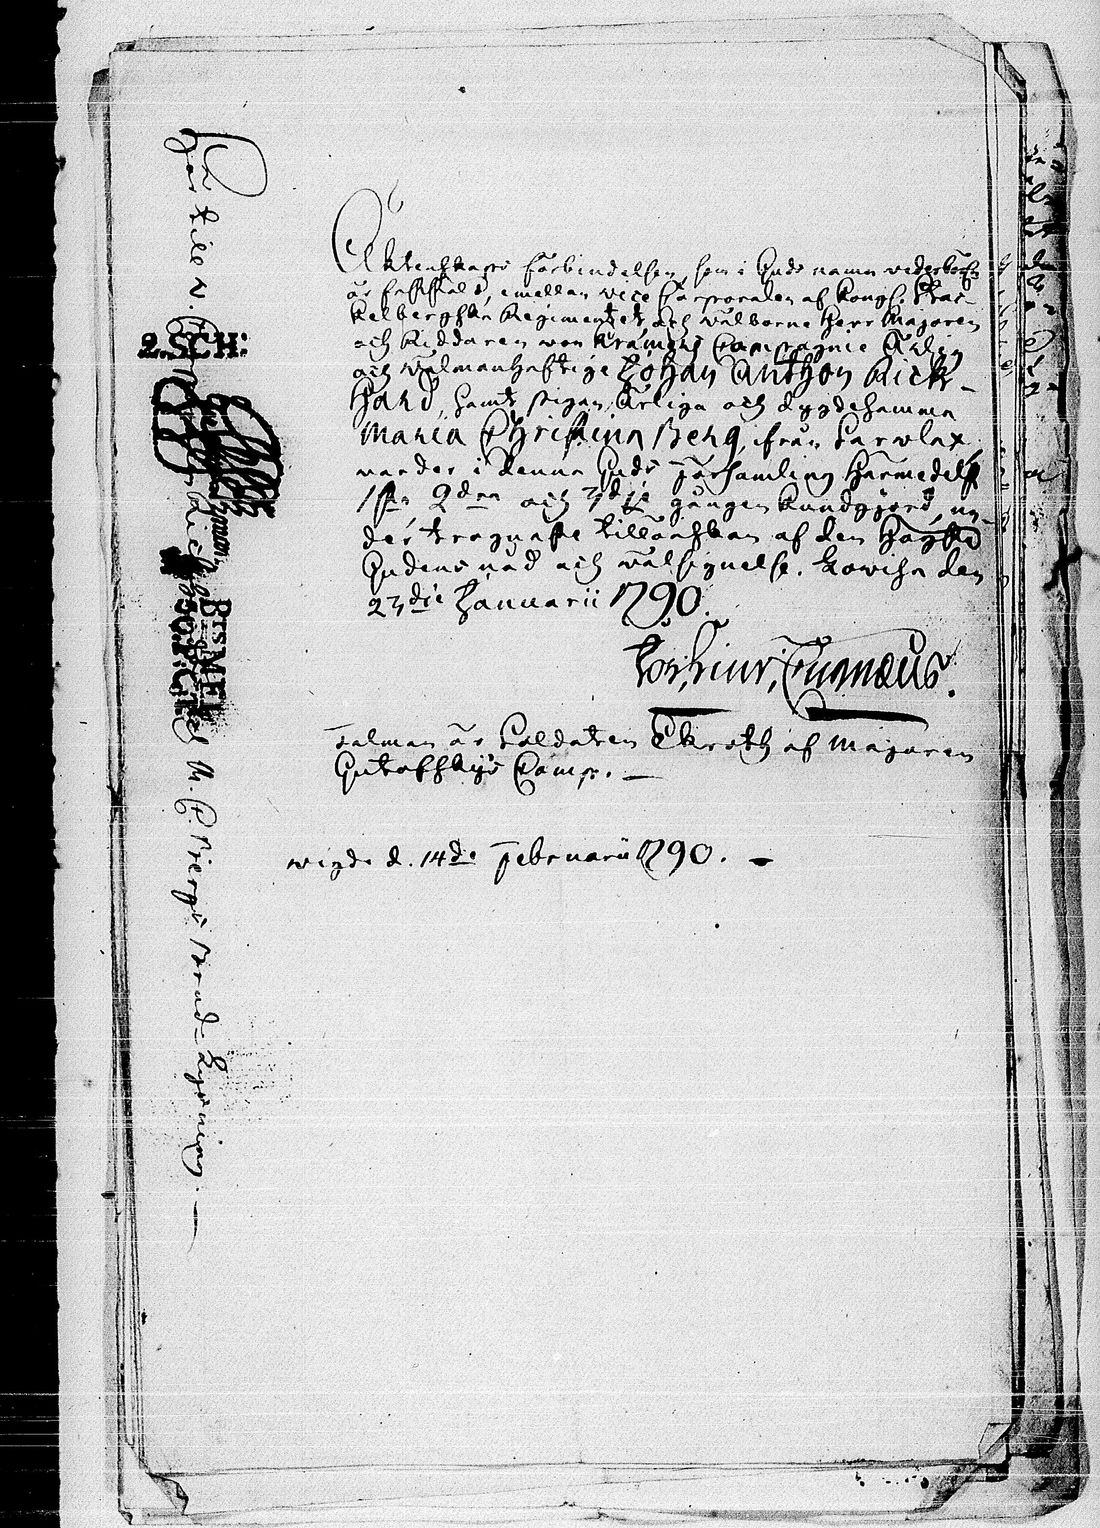 Ächtenskaps förbindelsen, som i Guds namn wederbörl:
är fastställd, emellan vice Corporalen af Kongl. Stac-
kelbergska Regimentet, och wälborne Herr Majoren
och Riddaren von Kræmers Compagnie Ärlig
och Wälmanhaftige Johan Anthon Rick-
hard, samt Pigan Ärliga och dygdesamma
Maria Christina Berg, från Sarvlax
warder i denna Guds Församling härmedelst
1sta 2dra och 3dje gången kundgjord, un-
der trognaste tillönskan af den Högste
Gudens nåd och wälsignelse. Lowisa den
23die Januarii 1790.
Talman är Soldaten Ekroth af Majoren
Gutoffskys Comp.
wigde d. 14de Februarii 1790.
2 SCH:
M. C. Bergs Brud-Lysning.